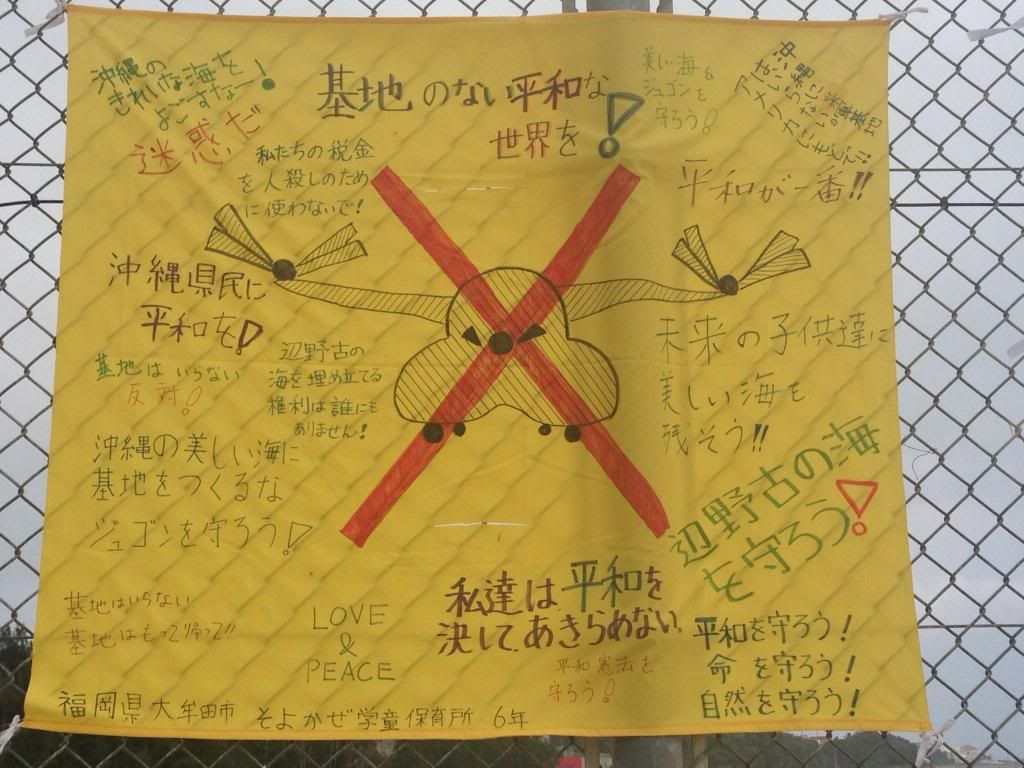 沖縄の
きれいな海を
よごすなー！
迷惑だ
基地のない平和な
世界を！
美しい海＆
ジュゴンを
守ろう！
沖縄に米軍基地
はいらない
アメリカにもどて!!
私たちの税金
を人殺しのため
に使わないで！
平和が一番!!
沖縄県民に
平和を！
基地は いらない
反対！
辺野古の
海を埋め立てる
権利は誰にも
ありません！
未来の子供達に
美しい海を
残そう!!
沖縄の美しい海に
基地をつくるな
ジュゴンを守ろう！
辺野古の海
を守ろう！
基地はいらない
基地はもって帰って!!
LOVE
&
PEACE
私達は平和を
決して、あきらめない。
平和憲法を
守ろう！
平和を守ろう！
命 を守ろう！
自然を守ろう！
福岡県 大牟田市 そよかぜ学童保育所 6年